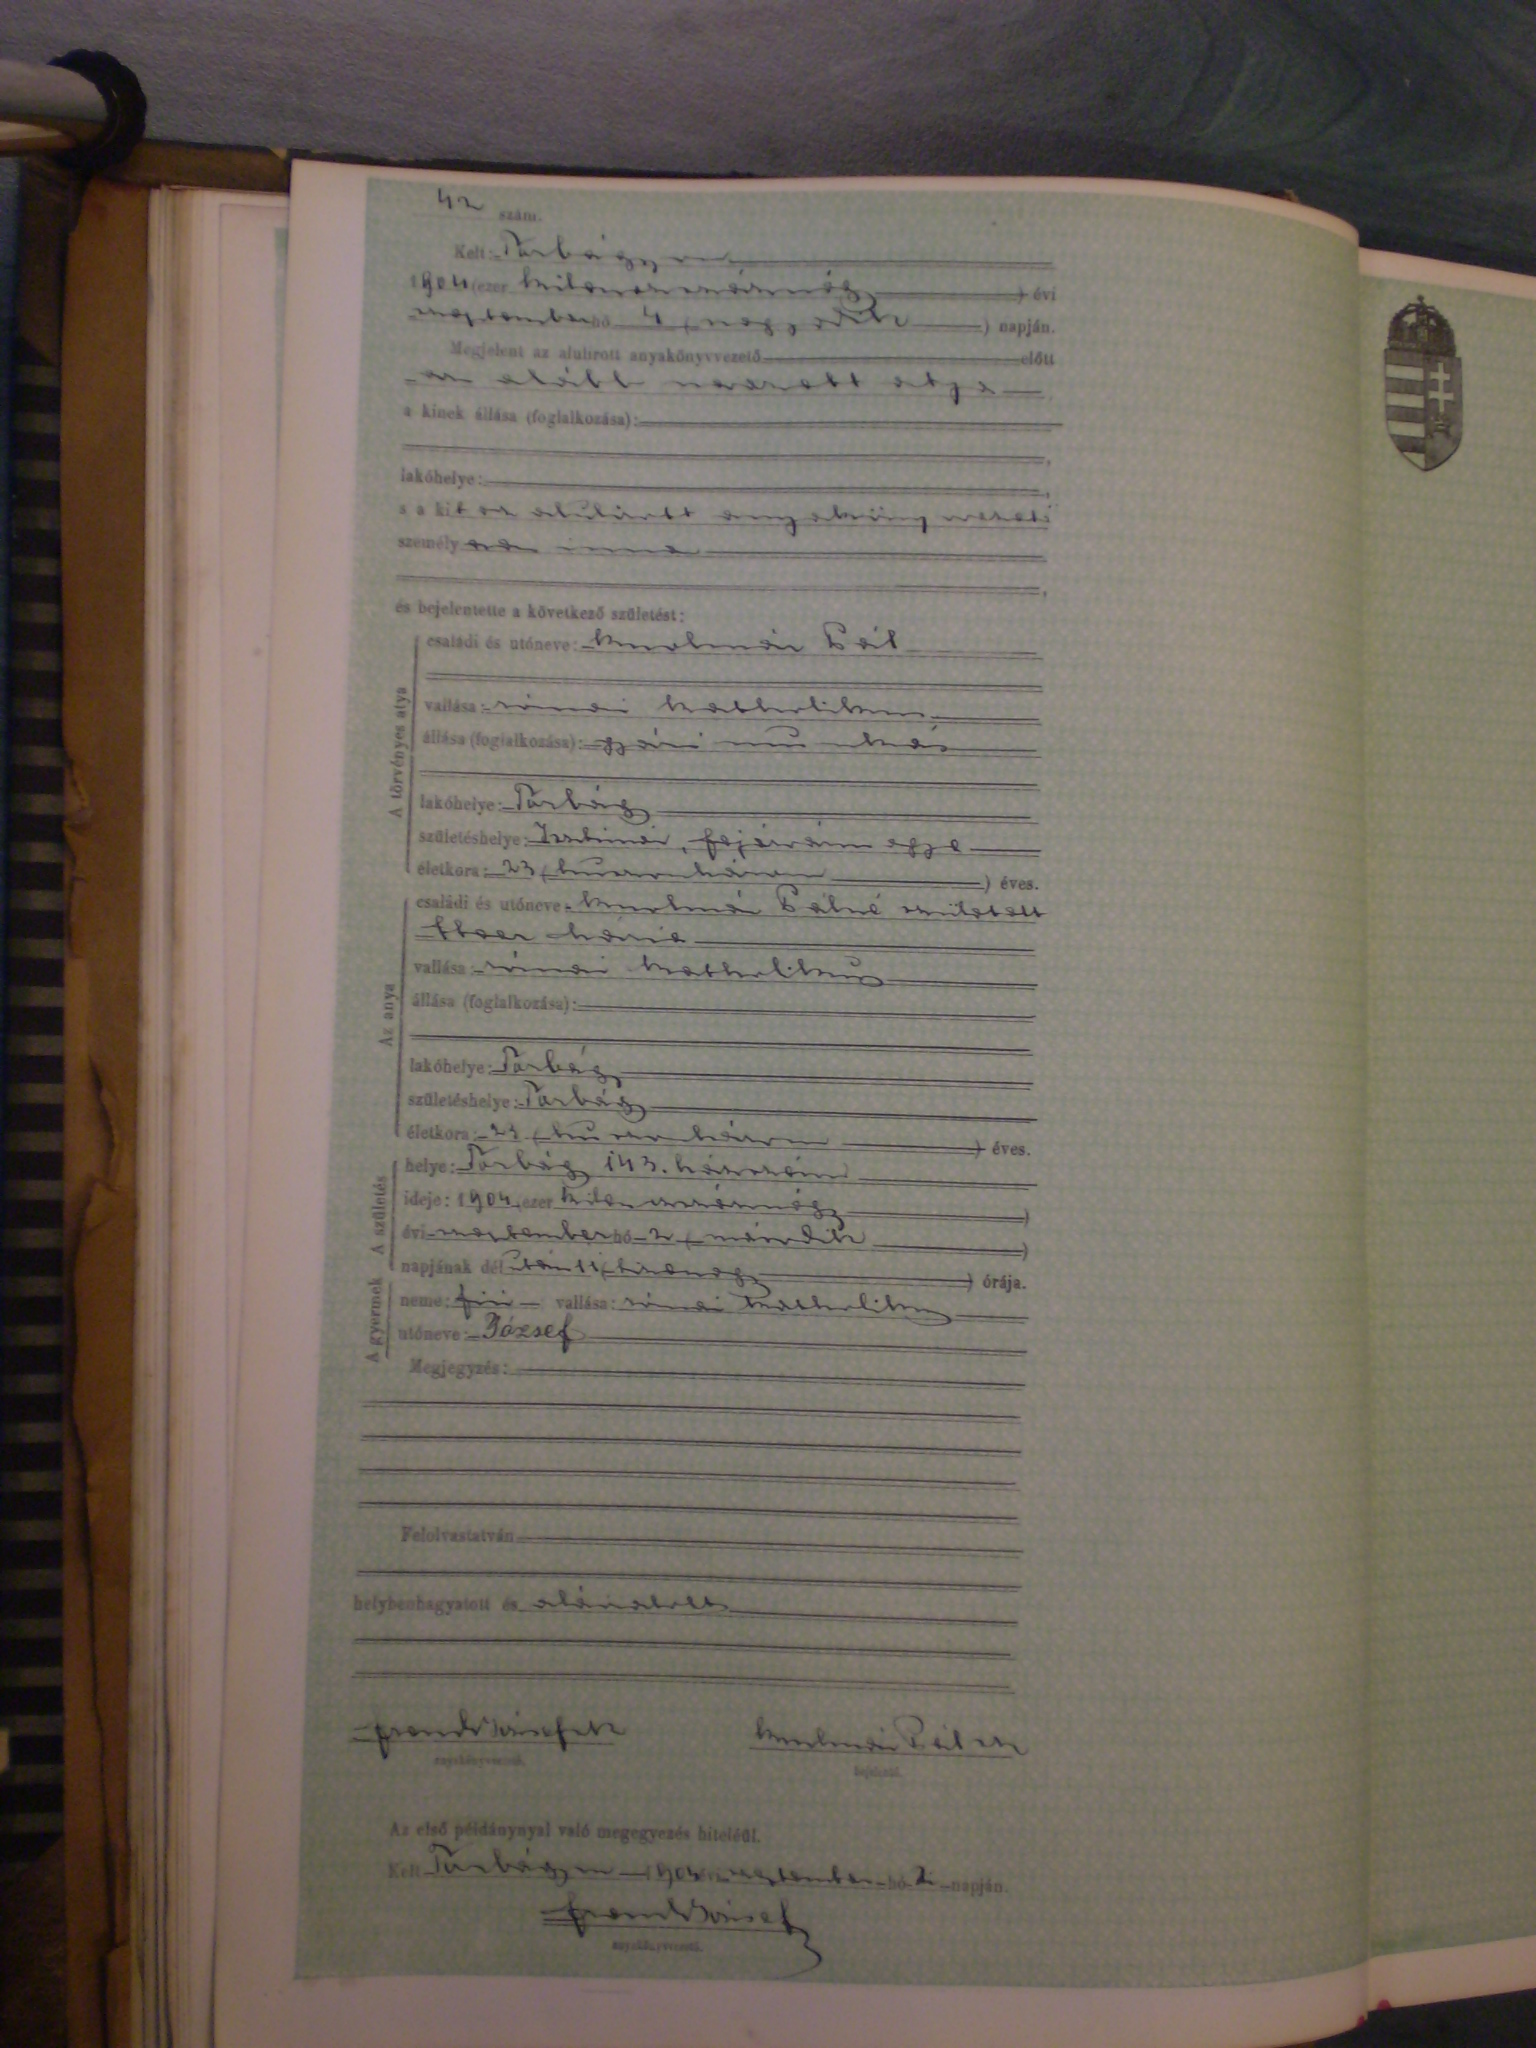 42 szám.
Kelt: Torbágyon
1904 (ezer kilencszáznégy) évi
szeptember hó 4 (negyedik) napján.
Megjelent az alulírott anyakönyvvezető előtt
az alább nevezett atya
a kinek állása (foglalkozása):
lakóhelye:
s a kit az alulírott anyakönyvvezető
személyesen ismer
és bejelentette a következő születést:
A törvényes atya
családi és utóneve: Pál
vallása: római katholikus
állása (foglalkozása): gyári munkás
lakóhelye: Torbágy
születéshelye: Isztimér, fejérvármegye
életkora: 23 (huszonhárom) éves.
Az anya
családi és utóneve: Pálné született
Mária
vallása: római katholikus
állása (foglalkozása):
lakóhelye: Torbágy
születéshelye: Torbágy
életkora: 23 (huszonhárom) éves.
A születés
helye: Torbágy 143. házszám
ideje: 1904 ezer kilencszáznégy)
évi szeptember hó 2 (második)
napjának délután 11 (tizenegy) órája.
A gyermek
neme: fiú vallása: római katholikus
utóneve: József
Megjegyzés:
Felolvastatván
helybenhagyatott és aláíratott
József sk Pál sk
anyakönyvvezető. bejelentő.
Az első példánynyal való megegyezés hiteléül.
Kelt Torbágyon 1904 szeptember hó napján.
József
anyakönyvvezető.